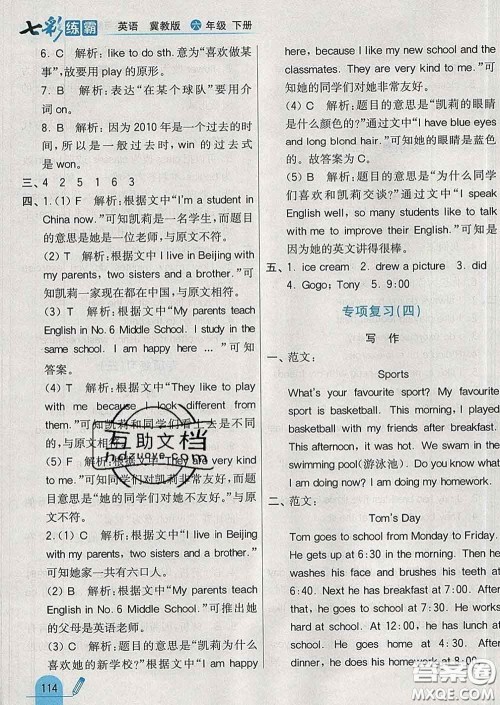 七彩练霸 英语 冀教版 六年级 下册
6. C 解析：like to do sth. 意为“喜欢做某
事”，故要用 play 的原形。
7. B 解析：表达“在某个球队”要用介
词 on。
8. B 解析：因为 2010 年是一个过去的时
间，所以是一般过去时，win 的过去式
是 won。
三、4 2 5 1 6 3
四、1. (1) F 解析：根据文中“I'm a student in
China now.”可知凯莉是一名学生，而题目
的意思是她是一位老师，与原文不符。
(2) T 解析：根据文中“I live in Beijing with
my parents, two sisters and a brother.”可知
凯莉一家现在都在中国，与原文相符。
(3) T 解析：根据文中“My parents teach
English in No. 6 Middle School. I study in
the same school. I am happy here ...”可知
答案。
(4) T 解析：根据文中“They like to play
with me because I look different from
them.”可知凯莉和同学们看上去是不同
的，与原文相符。
(5) F 解析：根据文中“They are very
kind to me.”可知同学们对凯莉非常好，而
题目意思是“她的同学们对她不友好。”
2. (1) B 解析：根据文中“I live in Beijing
with my parents, two sisters and a brother.”
可知她家一共有六口人。
(2) B 解析：根据文中“My parents teach
English in No. 6 Middle School.”可推出她
的父母是英语老师。
(3) B 解析：题目的意思是“凯莉为什么
喜欢她的新学校？”根据文中“I am happy
114
here, because I like my new school and the
classmates. They are very kind to me.”可知
她的同学们对她非常友好。
(4) C 解析：题目的意思是“凯莉的眼睛
是什么颜色的？”通过文中“I have blue eyes
and long blond hair.”可知她的眼睛是蓝色
的。故答案为 C。
(5) A 解析：题目的意思是“为什么同学
们喜欢和凯莉交谈？”通过文中“I speak
English well, so many students like to talk
with me to improve their English.”可知是
因为她的英文讲得很棒。
五、1. ice cream 2. drew a picture 3. did
4. Gogo; Tony 5. 9:00
专项复习(四)
写 作
一、范文：
Sports
What's your favourite sport? My favourite
sport is basketball. This morning, I played
basketball with my friends after breakfast.
This afternoon, it was hot. We swam in the
swimming pool(游泳池). Do you know what
I am doing now? I am doing my homework.
二、范文：
Tom's Day
Tom goes to school from Monday to Friday.
He gets up at 6:30 in the morning. Then he
has breakfast at 7:00. After
that, he goes to school at
He goes home at 4:00 in
dinner, he does his homework
互助文档
hdzuoye.com
答案圈
MXQE.COM